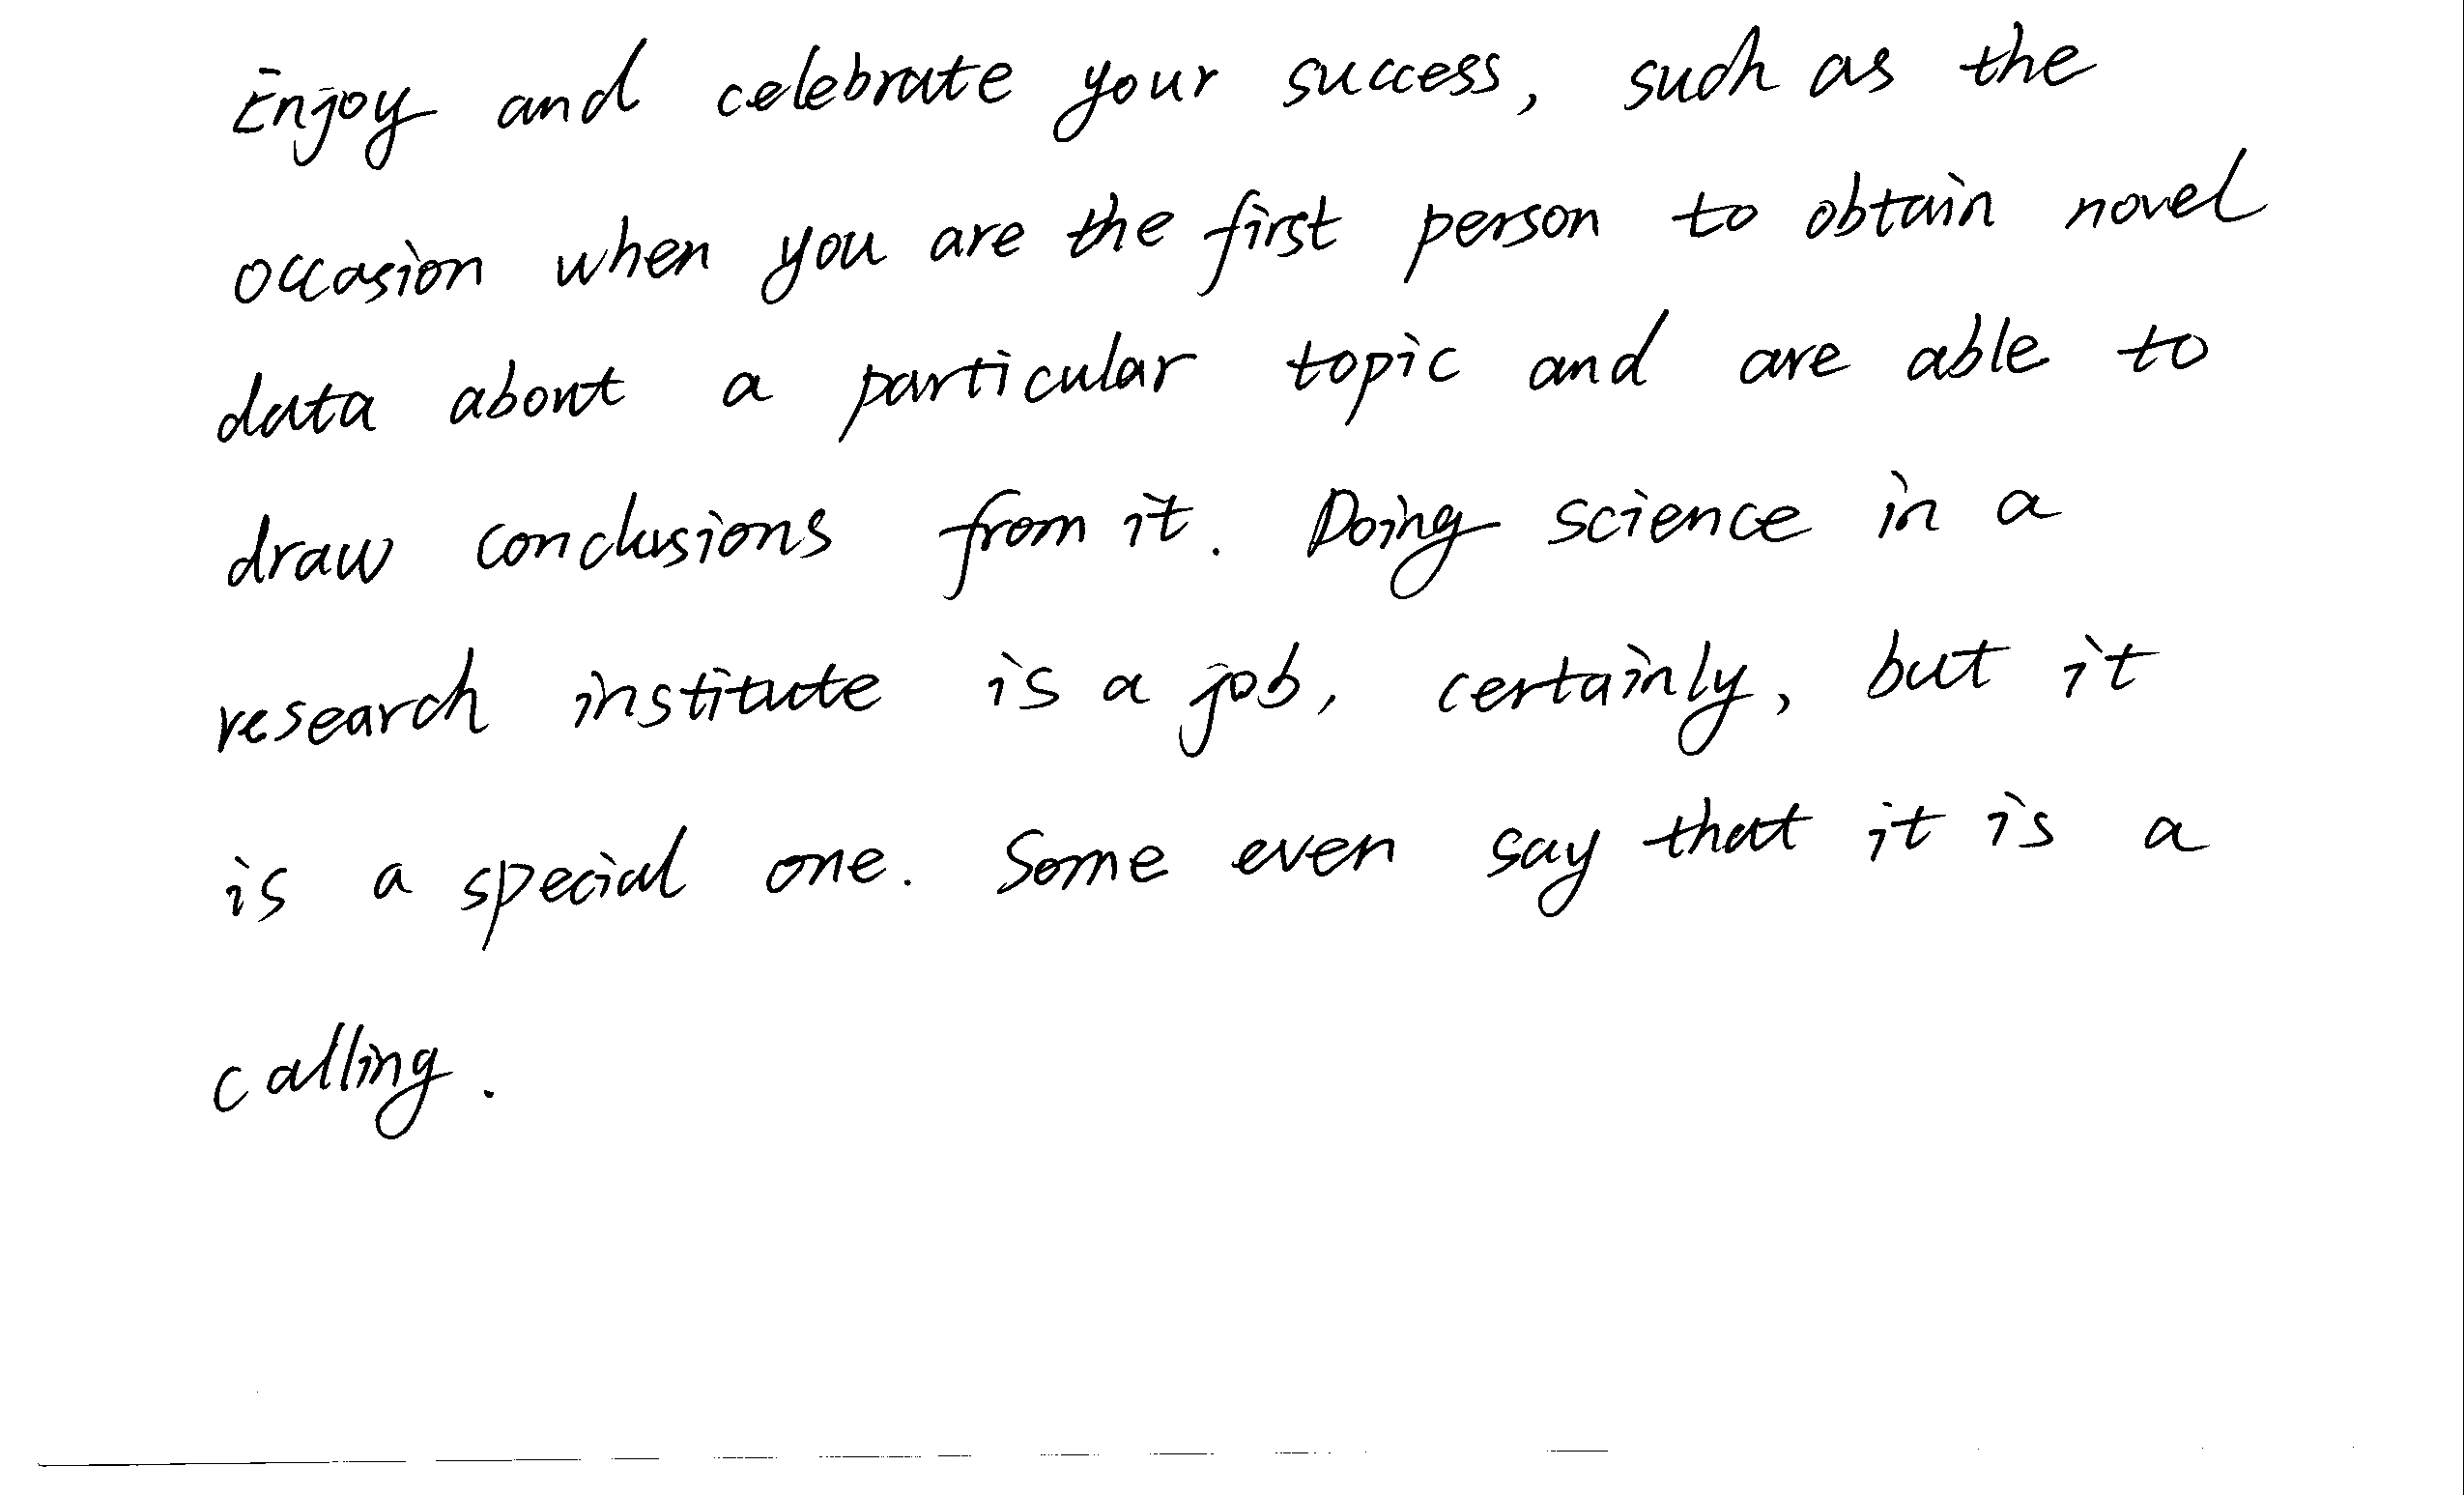 Enjoy and celebrate your success, such as the
occasion when you are the first person to obtain novel
data about a particular topic and are able to
draw conclusions from it. Doing science in a
research institute is a job, certainly, but it
is a special one. Some even say that it is a
calling.